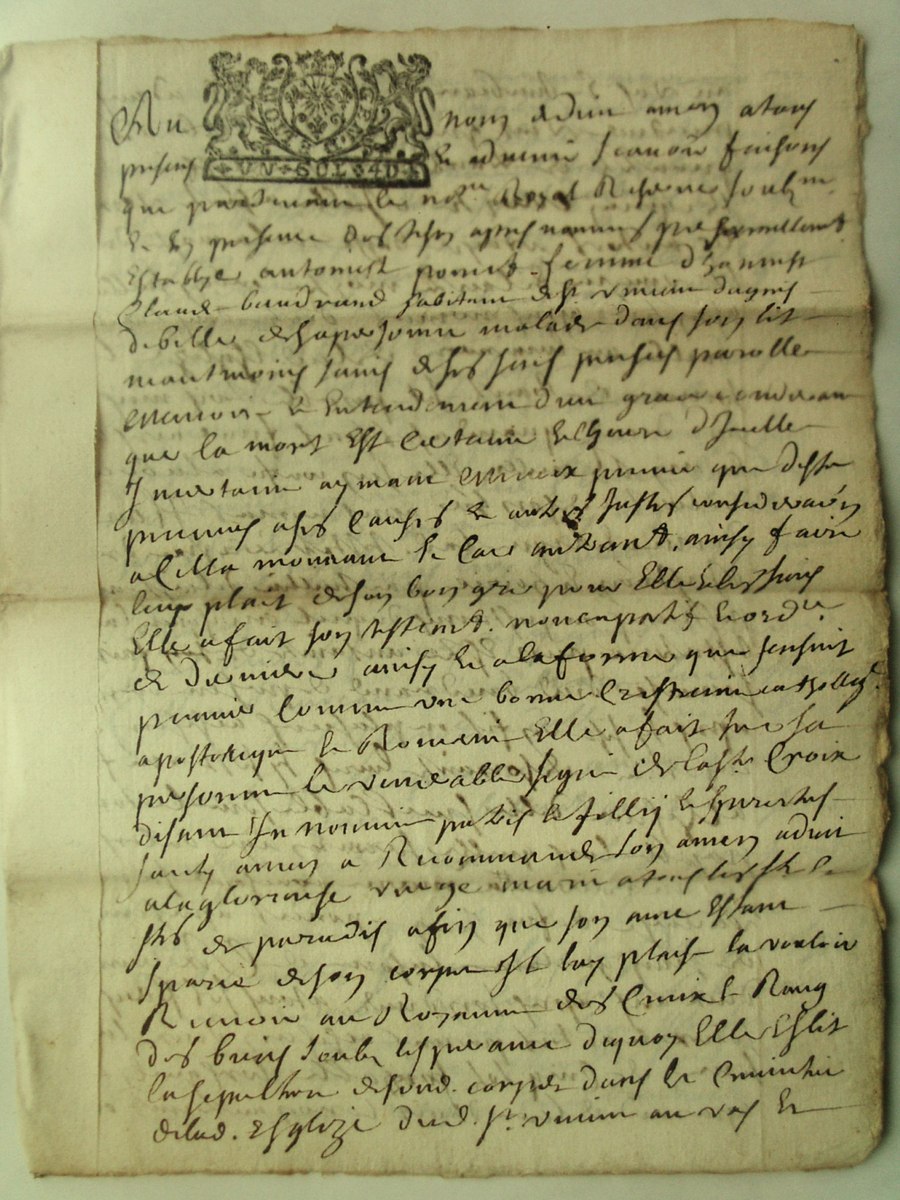 Au nom de dieu amen a tous
VN · SOL · 4D
presens & advenir scavoir faisons
que pardevant le no.re Royal Reserve soub.ne
& en presence des tesm apres nommes
Establye femme d'honnest
Claude baudrand habitant de S.t d'agnes
debille de sa personne malade dans son lit
neantmoins saine de ses sens penses parolle
memoire & Entendement dieu grace considerant
que la mort Est Certaine & l'heure d'Icelle
Incertaine aymant mieux
a ses Causes & autres Justes considera.ons
a Elle mouvant le Cas ainsy faire
luy plait de son bon gre pour Elle & les siens
Elle a fait son testam.t noncupatif & ord.re
de derniere ainsy & a la forme que sensuit
premier Comme une bonne Crestienne catholliq.
apostolique & Romaine Elle a fait sur sa
personne le venerable signe de la S.te Croix
disant In nomine patris & fillij & spiritus
santy amen a Recommande son ame a dieu
a la glorieuse vierge marie a tous les S.ts &
S.tes de paradis affin que son ame Estant
separe de son corps Il luy plaise la vouloir
Recevoir au Royaume des Cieux & Rang
des biens soubz lesperance dequoy Elle Eslit
la sepulture de sond. corps dans le Cimintier
de lad. Esglize dud. S.t au vas &